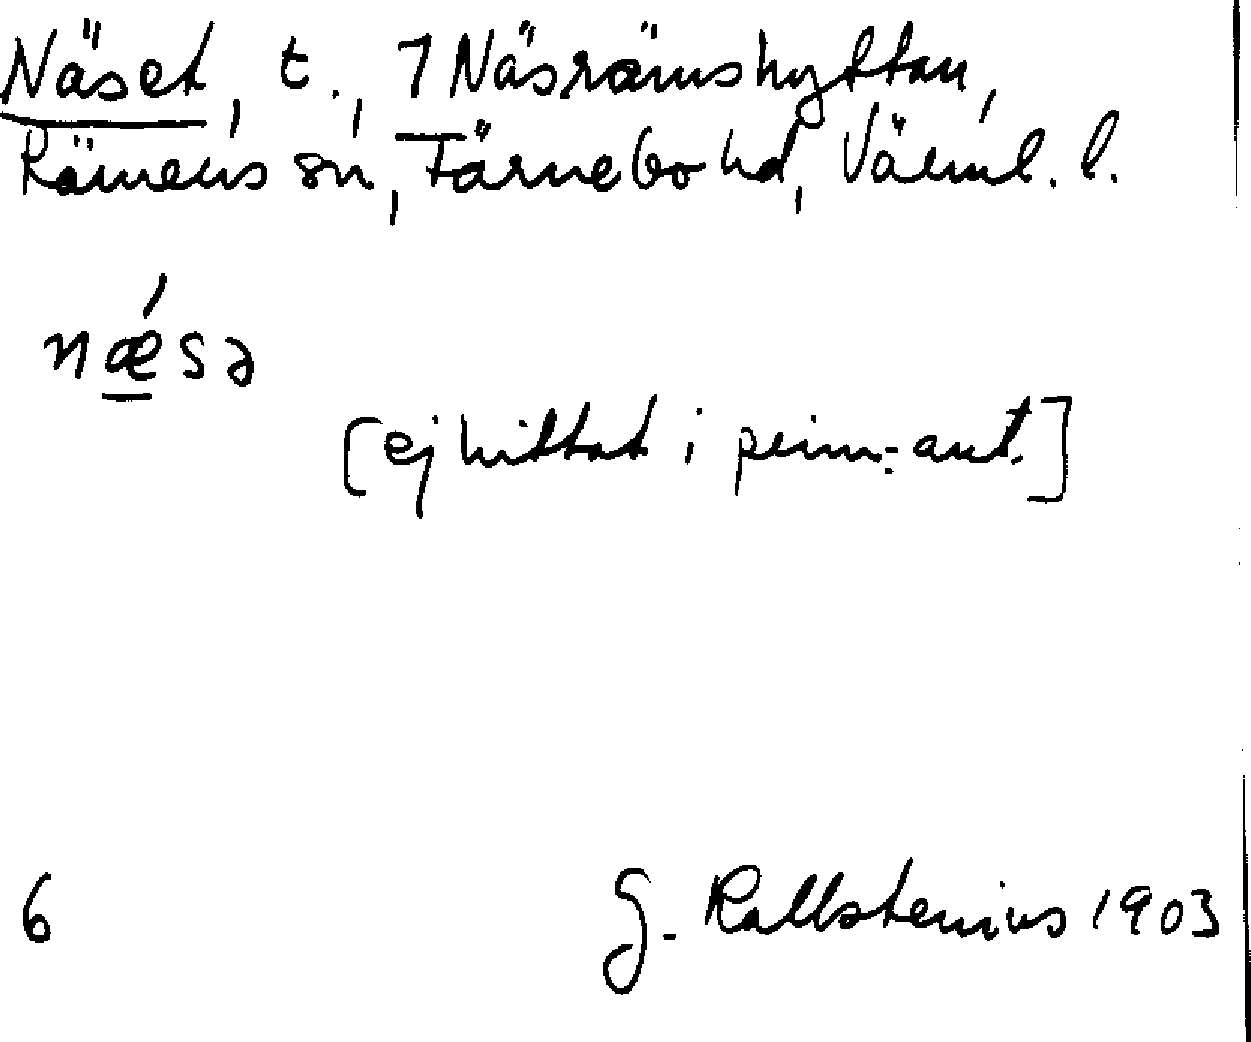 Näset, t., 7 Näsrämshyttan,
Rämens sn, Färnebo hd, Värml. l.
næ´sə
[ej hittat i prim.-ant.]
6 G. Kallstenius 1903